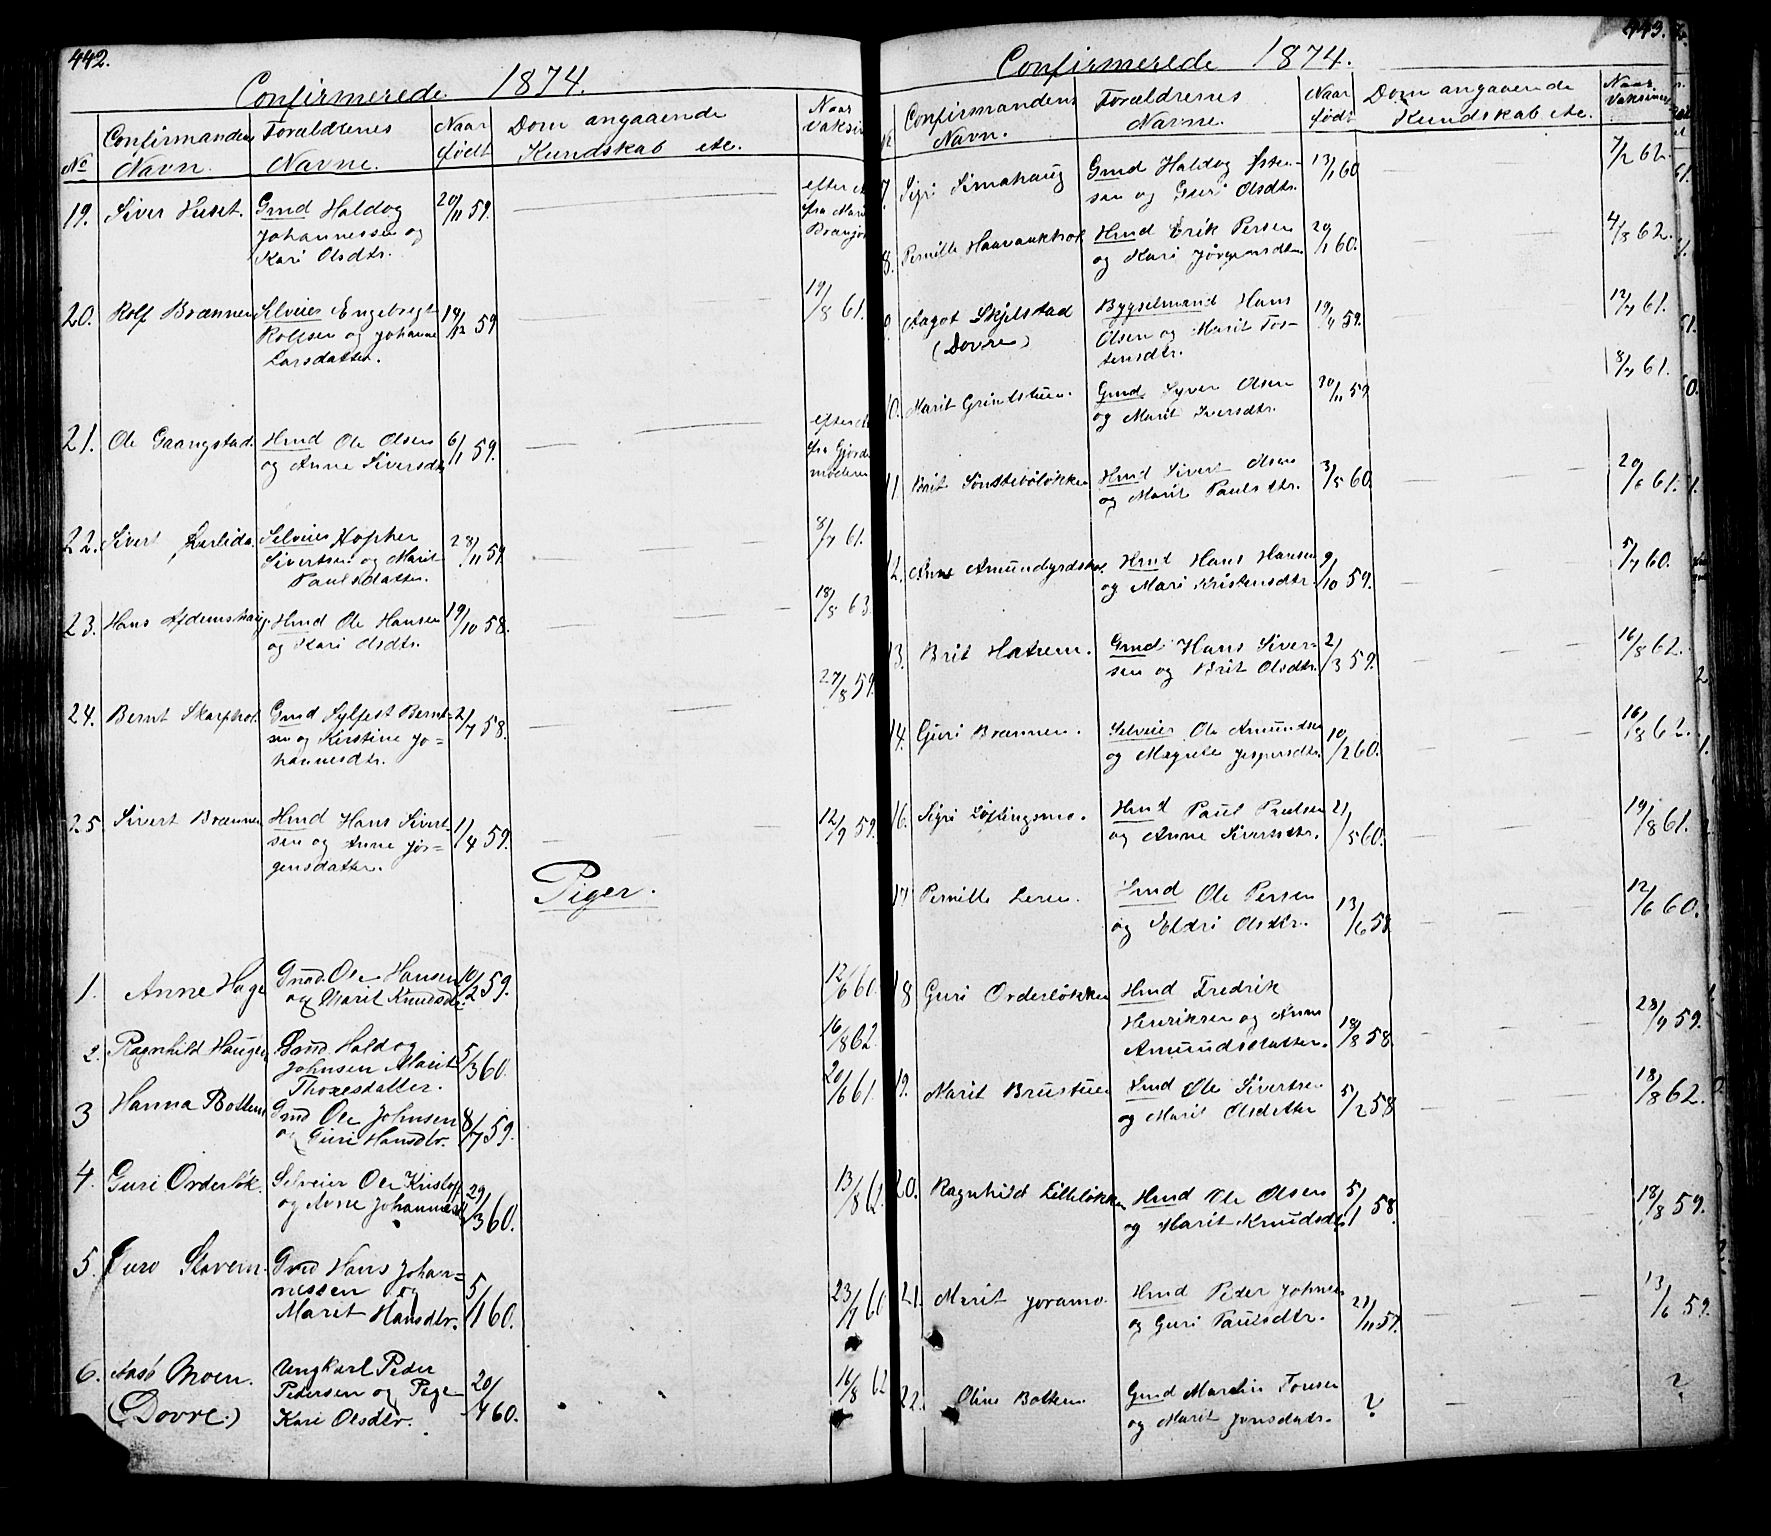 442.
Confirmerede 1874.
No
Confirmandens
Navn.
Forældrenes
Navne.
Naar
født
Dom angaaende
Kundskab etc.
Naar
Vaksin
19. Siver Huset. Gmd Haldog 20/11 59.
Johannessen og
Kari Olsdtr.
efter
fra
20. Rolf Brænnen Selveier Engebregt 14/12 59 19/8 61.
Rolfsen og Johanne
Larsdatter.
21. Ole Gaangstad. Hmd Ole Olsen 6/1 59.
og Anne Siversdtr
efter
fra
22. Sivert Selveier 28/11 59. 8/7 61.
Sivertsen og Marit
Paulsdatter.
23. Hans Hmd Ole Hansen 19/10 58. 18/8 63
og Kari Olsdtr.
24. Bernt Gmd Sylfest Bernt- 2/7 58. 27/8 59.
sen og Kirstine Jo=
hannesdtr.
25 Sivert Brænnen Hmd Hans Sivert- 1/4 59. 12/9 59.
sen og Anne Jør=
gensdatter.
Piger.
1. Anne Hage Gmd. Ole Hansen 10/2 59. 12/6 60
og Marit Knudsdtr
2. Ragnhild Haugen Gmd. Haldog 5/3 60. 16/8 62
Johnsen Marit
Thoresdatter.
3 Hanna Botten Gmd Ole Johnsen 8/7 59. 20/6 61
og Guri Hansdtr.
4. Guri Orderløk. Selveier Ole Kristof 29/3 60. 13/8 62.
og Anne Johannesd
5. Guro Slavem. Gmd Hans Johan= 5/1 60. 23/7 60
nessen og
Marit Hansdtr.
6. Moen. Ungkarl Peder 20/4 60. 16/8 62
(Dovre.) Pedersen og Pige
Kari Olsdtr.
443.
Confirmerede 1874.
Confirmandens
Navn.
Forældrenes
Navne.
Naar
født
Dom angaaende
Kundskab etc.
Naar
Vaksineret
7. Sigri Gmd Haldog Østen- 13/1 60 7/2 62.
sen og Olsdtr.
8. Pernille Hmd Erik Persen 29/1 60. 4/8 62.
og Kari
9. Aagot Skjelstad Bygselmand Hans 19/4 59. 12/7 61.
(Dovre) Olsen og Marit Tos-
tensdtr.
10. Marit Grindstuen. Gmd Syver Olsen 30/11 59 8/7 61.
og Marit Iversdtr.
11 Brit Hmd Sivert Olsen 3/5 60. 20/6 61.
og Marit Paulsdtr.
12. Anne Hmd Hans Hansen 9/10 59. 5/7 60.
og Mari
13. Brit Hatrem. Gmd Hans Siver- 2/3 59. 16/8 62.
sen og Brit Olsdtr.
14. Guri Brænnen. Selveier Ole Amundsen 10/2 60. 16/8 62.
og Magrete Jespersdtr.
16. Sigri Løftingsmo. Hmd Paul Paulsen 21/5 60. 19/8 61.
og Anne Siversdtr.
17 Pernille Leren. Hmd Ole Persen 13/6 58 12/6 60.
og Eldri Olsdtr.
18 Guri Orderløkken Hmd Fredrik 18/8 58. 28/9 59.
Henriksen og Anne
Amundsdatter.
19. Marit Brustuen Hmd Ole Sivertsen 5/2 58 18/8 62.
og Marit Olsdatter
20. Ragnhild Lilleløkken Hmd Ole Olsen 5/1 58. 18/8 59.
og Marit Knudsdtr
21. Marit Joramo. Hmd Peder Johnsen 21/11 57. 13/6 59.
og Guri Paulsdtr.
22. Oline Botten. Gmd Martin Toresen ? ?
og Marit Jonsdatr.